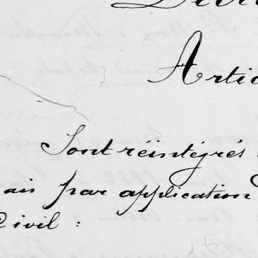 Artic
Sont réintégrés
ais par application
Civil :